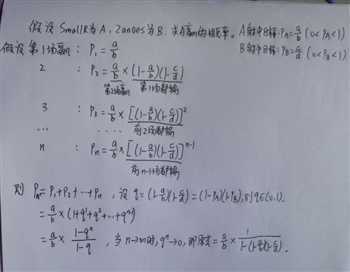 假设 SmallR为A, Zanoes为B. 求A赢的概率. A射中目标: P_A=a/b (0<P_A<1)
B射中目标: P_B=c/d (0<P_B<1)
假设第1场赢: P₁=a/b
2 : P₂=a/b×(1-a/b)(1-c/d)
第2场赢 第1场都输
3 : P₃=a/b×[(1-a/b)(1-c/d)]²
前2场都输
... ....
n : Pn=a/b×[(1-a/b)(1-c/d)]ⁿ⁻¹
前n-1场都输
则 P=P₁+P₂+…+Pn, 设 q=(1-a/b)(1-c/d)=(1-P_A)(1-P_B), 则q∈(0,1).
=a/b×(1+q+q²+…+qⁿ⁻¹)
=a/b×(1-qⁿ)/(1-q), 当n→∞时, qⁿ→0, 即原式=a/b×1/(1-(1-a/b)(1-c/d)).